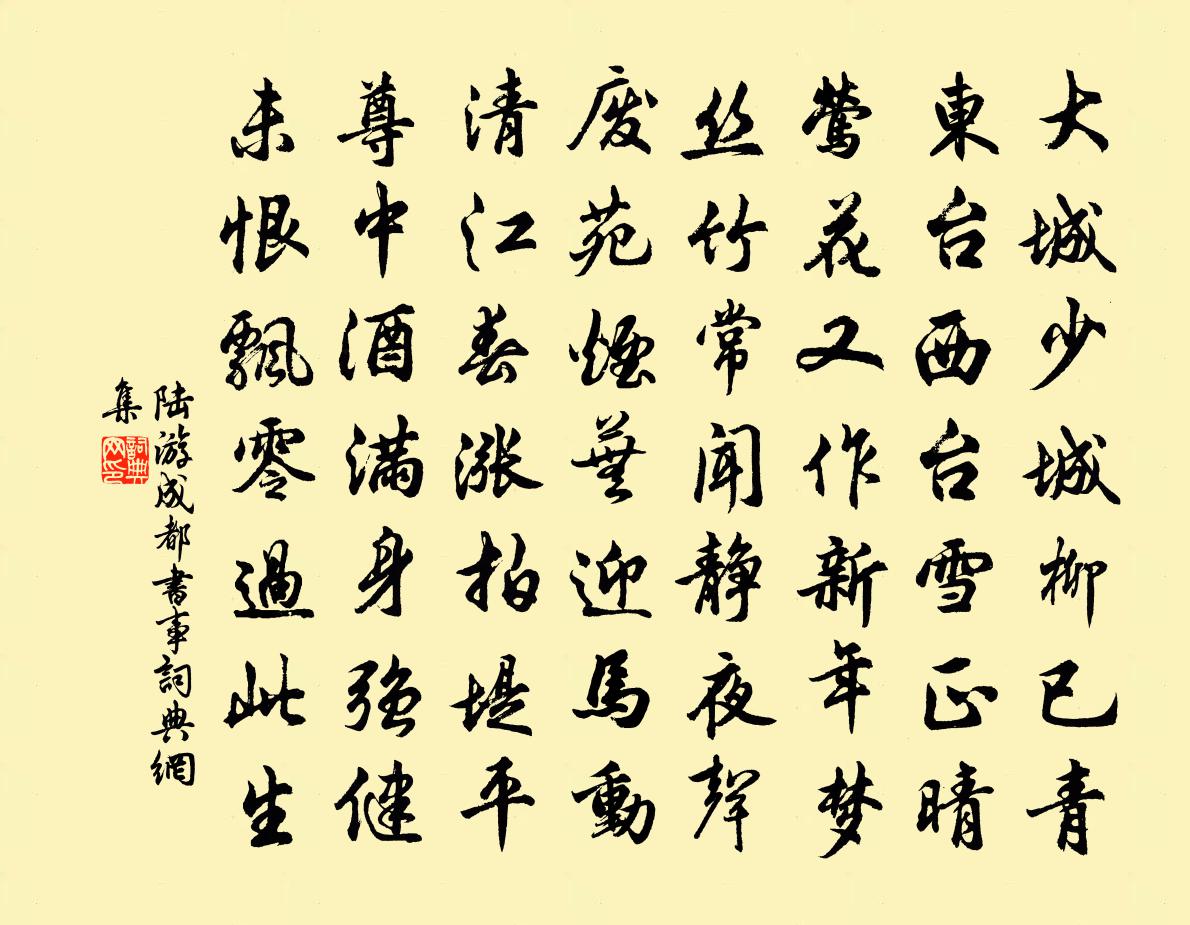 大城少城柳已青
東台西台雪正晴
莺花又作新年梦
丝竹常闻静夜聲
废苑煙蕪迎馬動
清江春漲拍堤平
尊中酒满身強健
未恨飄零過此生
陆游成都書事詞典網
集
詞典
网印